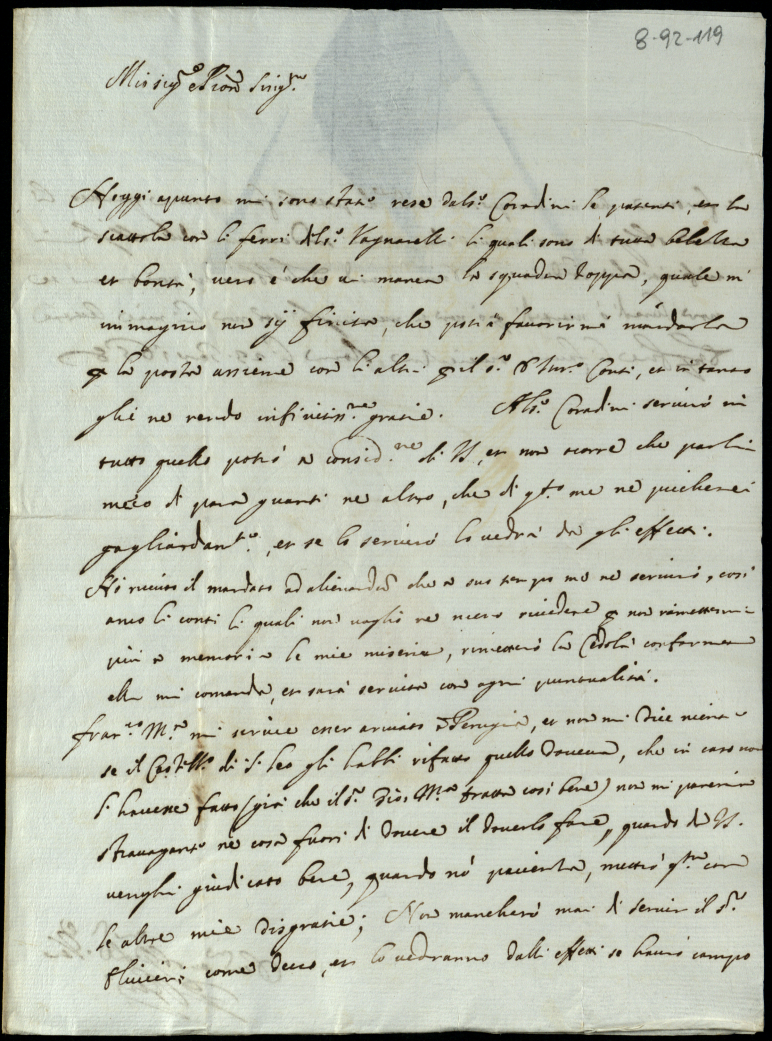 8-92-119
Mio sig.re e Pron Sing.mo
Hoggi apunto mi sono state rese dal s.r Coradini le patenti, et la
scattola con li ferri del s.r Vagnarelli li quali sono di tutta belezza
et bontà, vero é che vi manca la squadra zoppa, quale m'
immagino non sij finita, che potrà favorirmi mandarla
p la posta assieme con li altri p il s.r Conti, et in tanto
glié ne rendo infinitiss.me gratie. Al s.r Coradini servirò in
tutto quello potró a consid.ne di VS, et non ocorre che parli
meco di para guanti ne altro, che di q.to me ne picherei
gagliardam.te, et se lo servirò lo vedrà da gli effetti.
Hó riceuto il mandato ad alienandū che a suo tempo me ne servirò, così
anco li conti li quali non voglio ne meno rivedere p non rimettermi
più a memoria le mie miserie, rimetterò la Cedola conforme
ella mi comanda, et sarà servita con ogni puntualità.
Fran.co M.a mi scrive esser arivato a Perugia, et non mi dice niente
se il Cast.llo di S. Leo gli habbi rifatto quello doveva, che in caso non
l'havesse fatto (già che il s.r Gios. M.a tratta così bene) non mi pareria
stravagante ne cosa fuori di dovere il doverlo fare, quando da VS.
venghi giudicato bene, quando nó pacienza, metterò q.ta con
le altre mie disgratie; Non mancherò mai di servir il s.r
Olivieri come devo, et lo vedranno dalli effetti se haverò campo